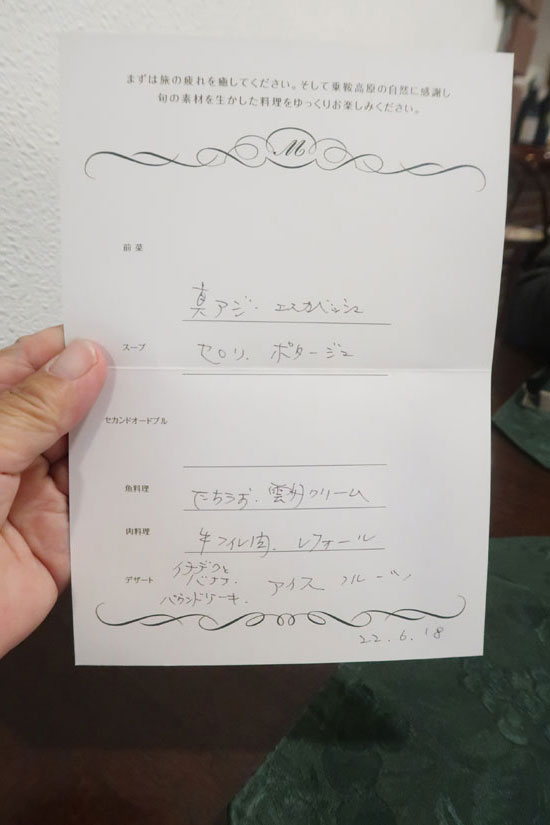 まずは旅の疲れを癒してください。そして乗鞍高原の自然に感謝し
旬の素材を生かした料理をゆっくりお楽しみください。
M
前菜
真アジ. エスカベッシュ
スープ
セロリ. ポタージュ
セカンドオードブル
魚料理
たちうお. 雲丹クリーム
肉料理
牛フィレ肉. レフォール
デザート
イチヂクと
バナナ.
パウンドケーキ.
アイス フルーツ
22.6.18